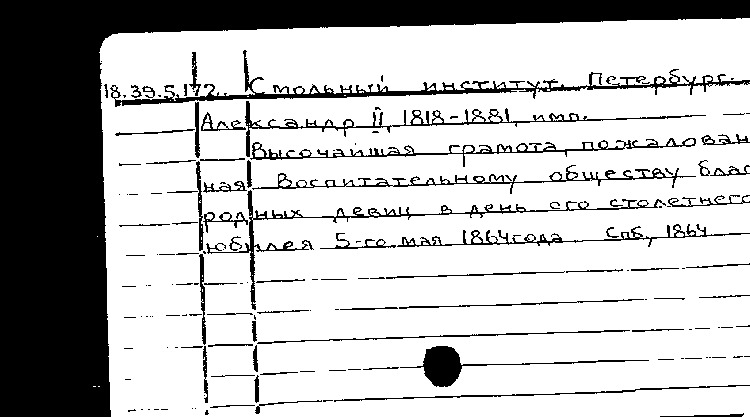 18.39.5.172. Смольный институт. Петербург.
Александр II, 1818-1881, имп.
Высочайшая грамота, пожалован
ная Воспитательному обществу благ
родных девиц в день его столетнего
юбилея 5-го мая 1864 года. Спб., 1864